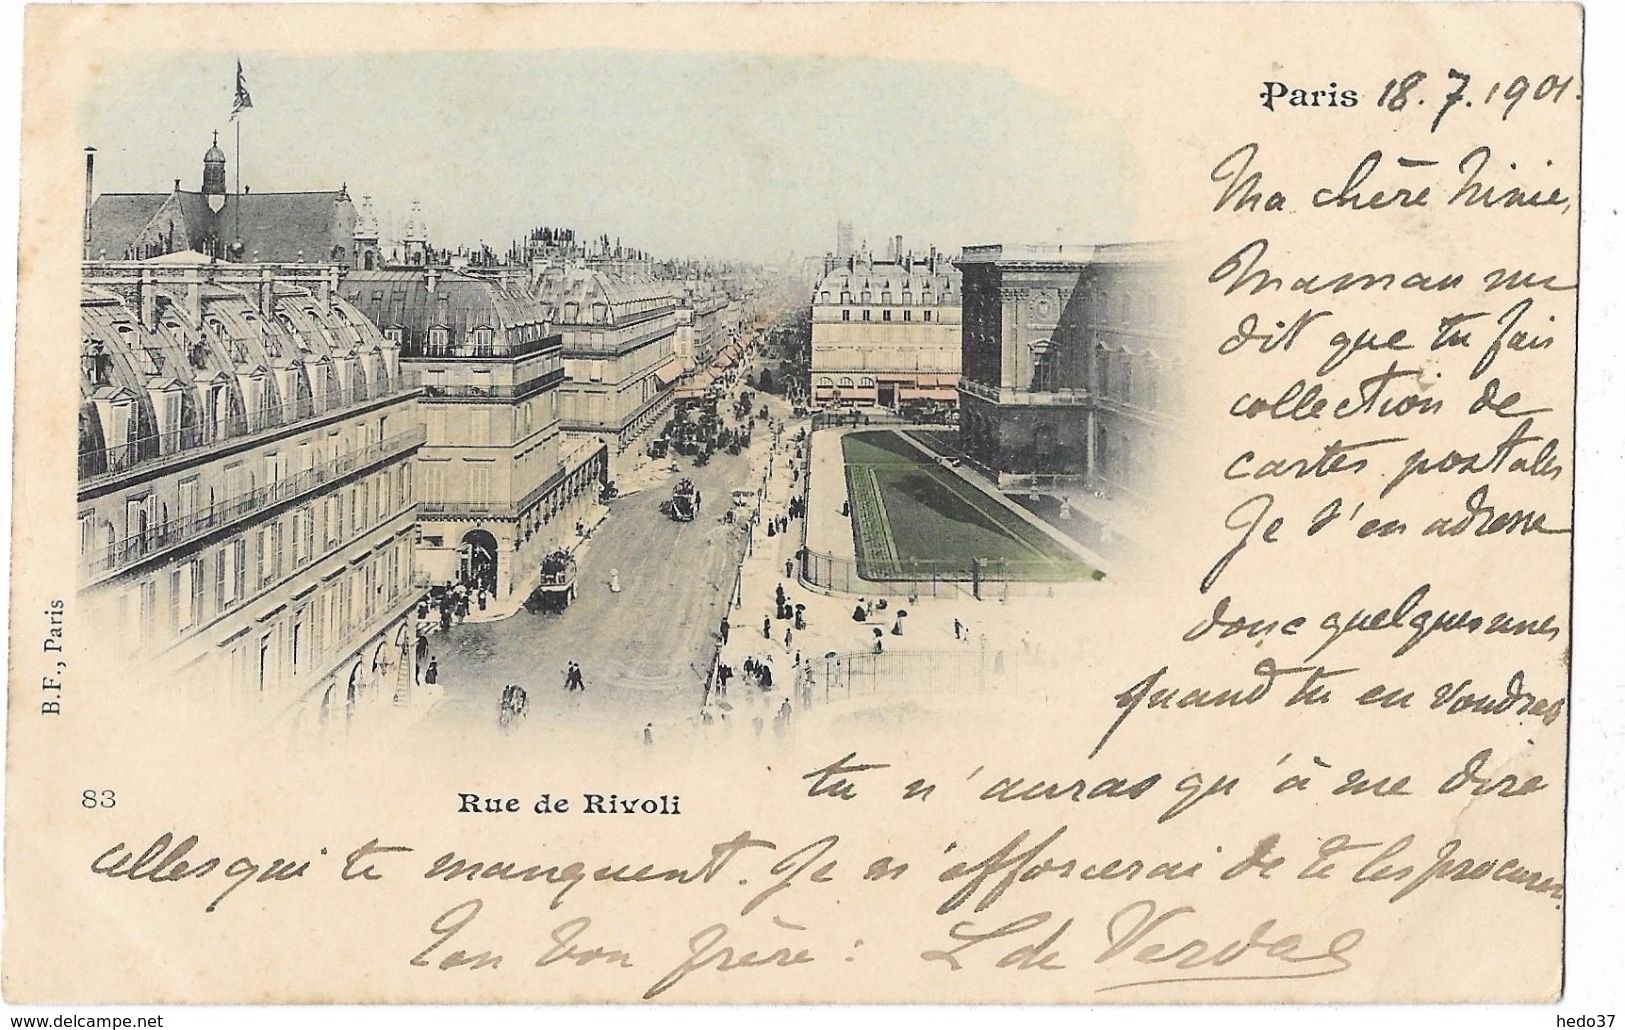 Paris 18.7.1901.
Ma chère Ninie,
Maman me
dit que tu fais
collection de
cartes postales
Je t'en adresse
donc quelquesunes
quand tu en voudras
tu n'auras qu'à me dire
celles qui te manquent. Je m'efforcerai de te les procurer.
Ton bon frère : L de
83
Rue de Rivoli
B.F., Paris
delcampe.net
hedo37